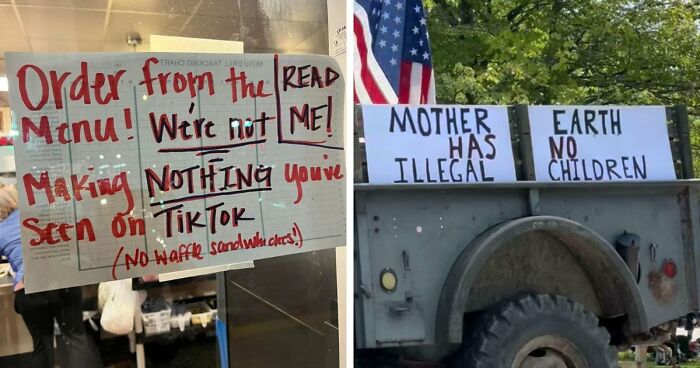 Order from the
Menu! We're not
READ
ME!
Making NOTHING you've
Seen on TikTok
(No waffle sandwhiches!)
MOTHER
HAS
ILLEGAL
EARTH
NO
CHILDREN